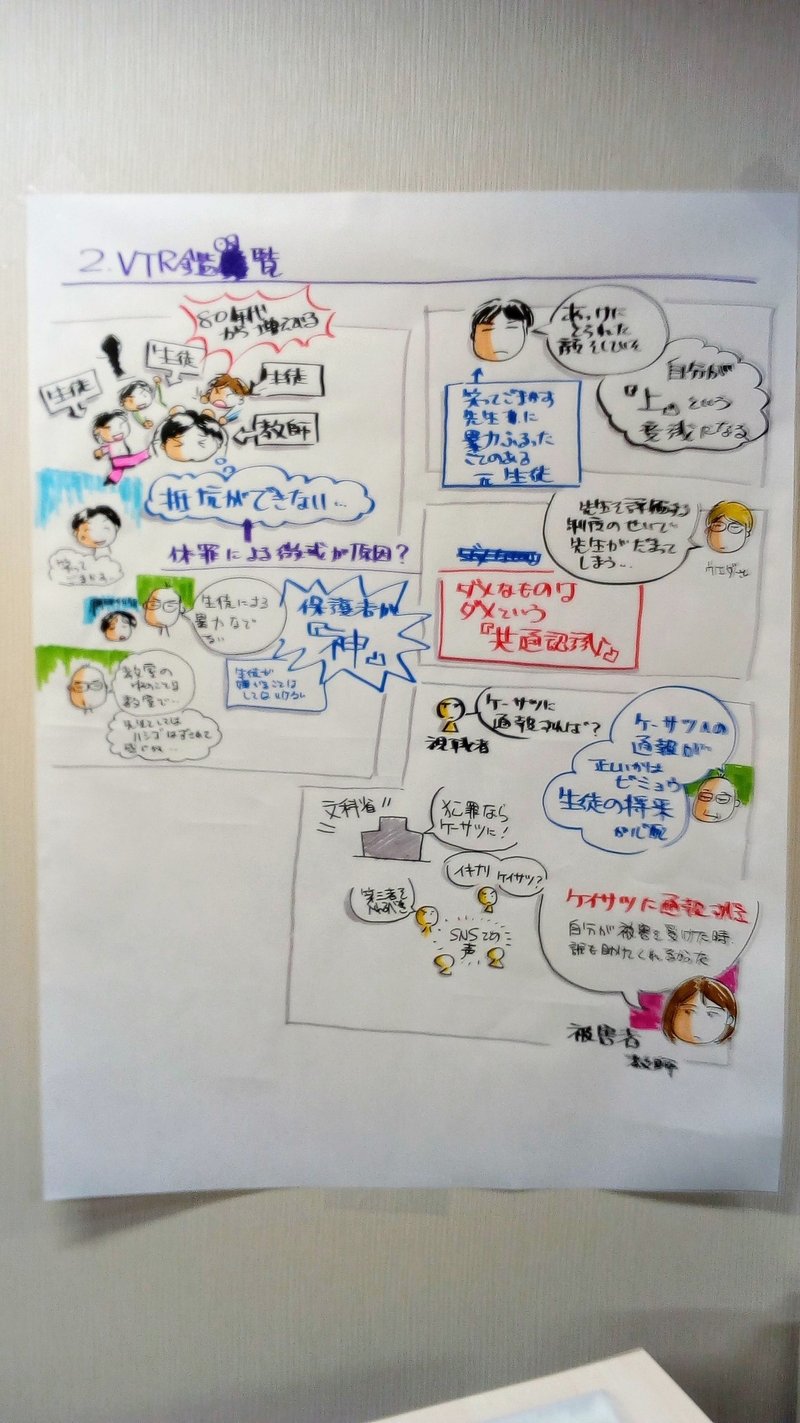 2.VTR鑑覧
80年代
から増える
生徒
生徒
生徒
教師
抵抗ができない…
体罰による懲戒が原因?
笑って
ごまかす
生徒による
暴力なんで
ない
保護者が
『神』
生徒が
嫌いることは
してはいけない
教室の
中のことは
教室で…
ハシゴはずされた
感じがね…
あっけに
とられた
顔をしている
自分が
『上』という
意識になる
笑ってごまかす
先生もに
暴力ふるった
ことのある
元生徒
先生を評価する
制度のせいで
先生がだまって
しまう…
ダメなものは
ダメという
『共通認識』
ケーサツに
通報すれば?
視聴者
ケーサツへの
通報が
正しいかは
ビミョウ
生徒の将来
が心配
文科省
犯罪なら
ケーサツに!
イキナリケイサツ?
第三者を
入れるべき
SNSでの
声
ケイサツに通報すべき
自分が被害を受けた時
誰も助けてくれなかった
被害者
教師